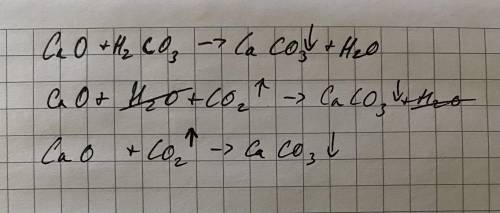 CaO + H₂CO₃ → CaCO₃↓ + H₂O
CaO + ~~H₂O~~ + CO₂↑ → CaCO₃↓ ~~+ H₂O~~
CaO + CO₂↑ → CaCO₃↓